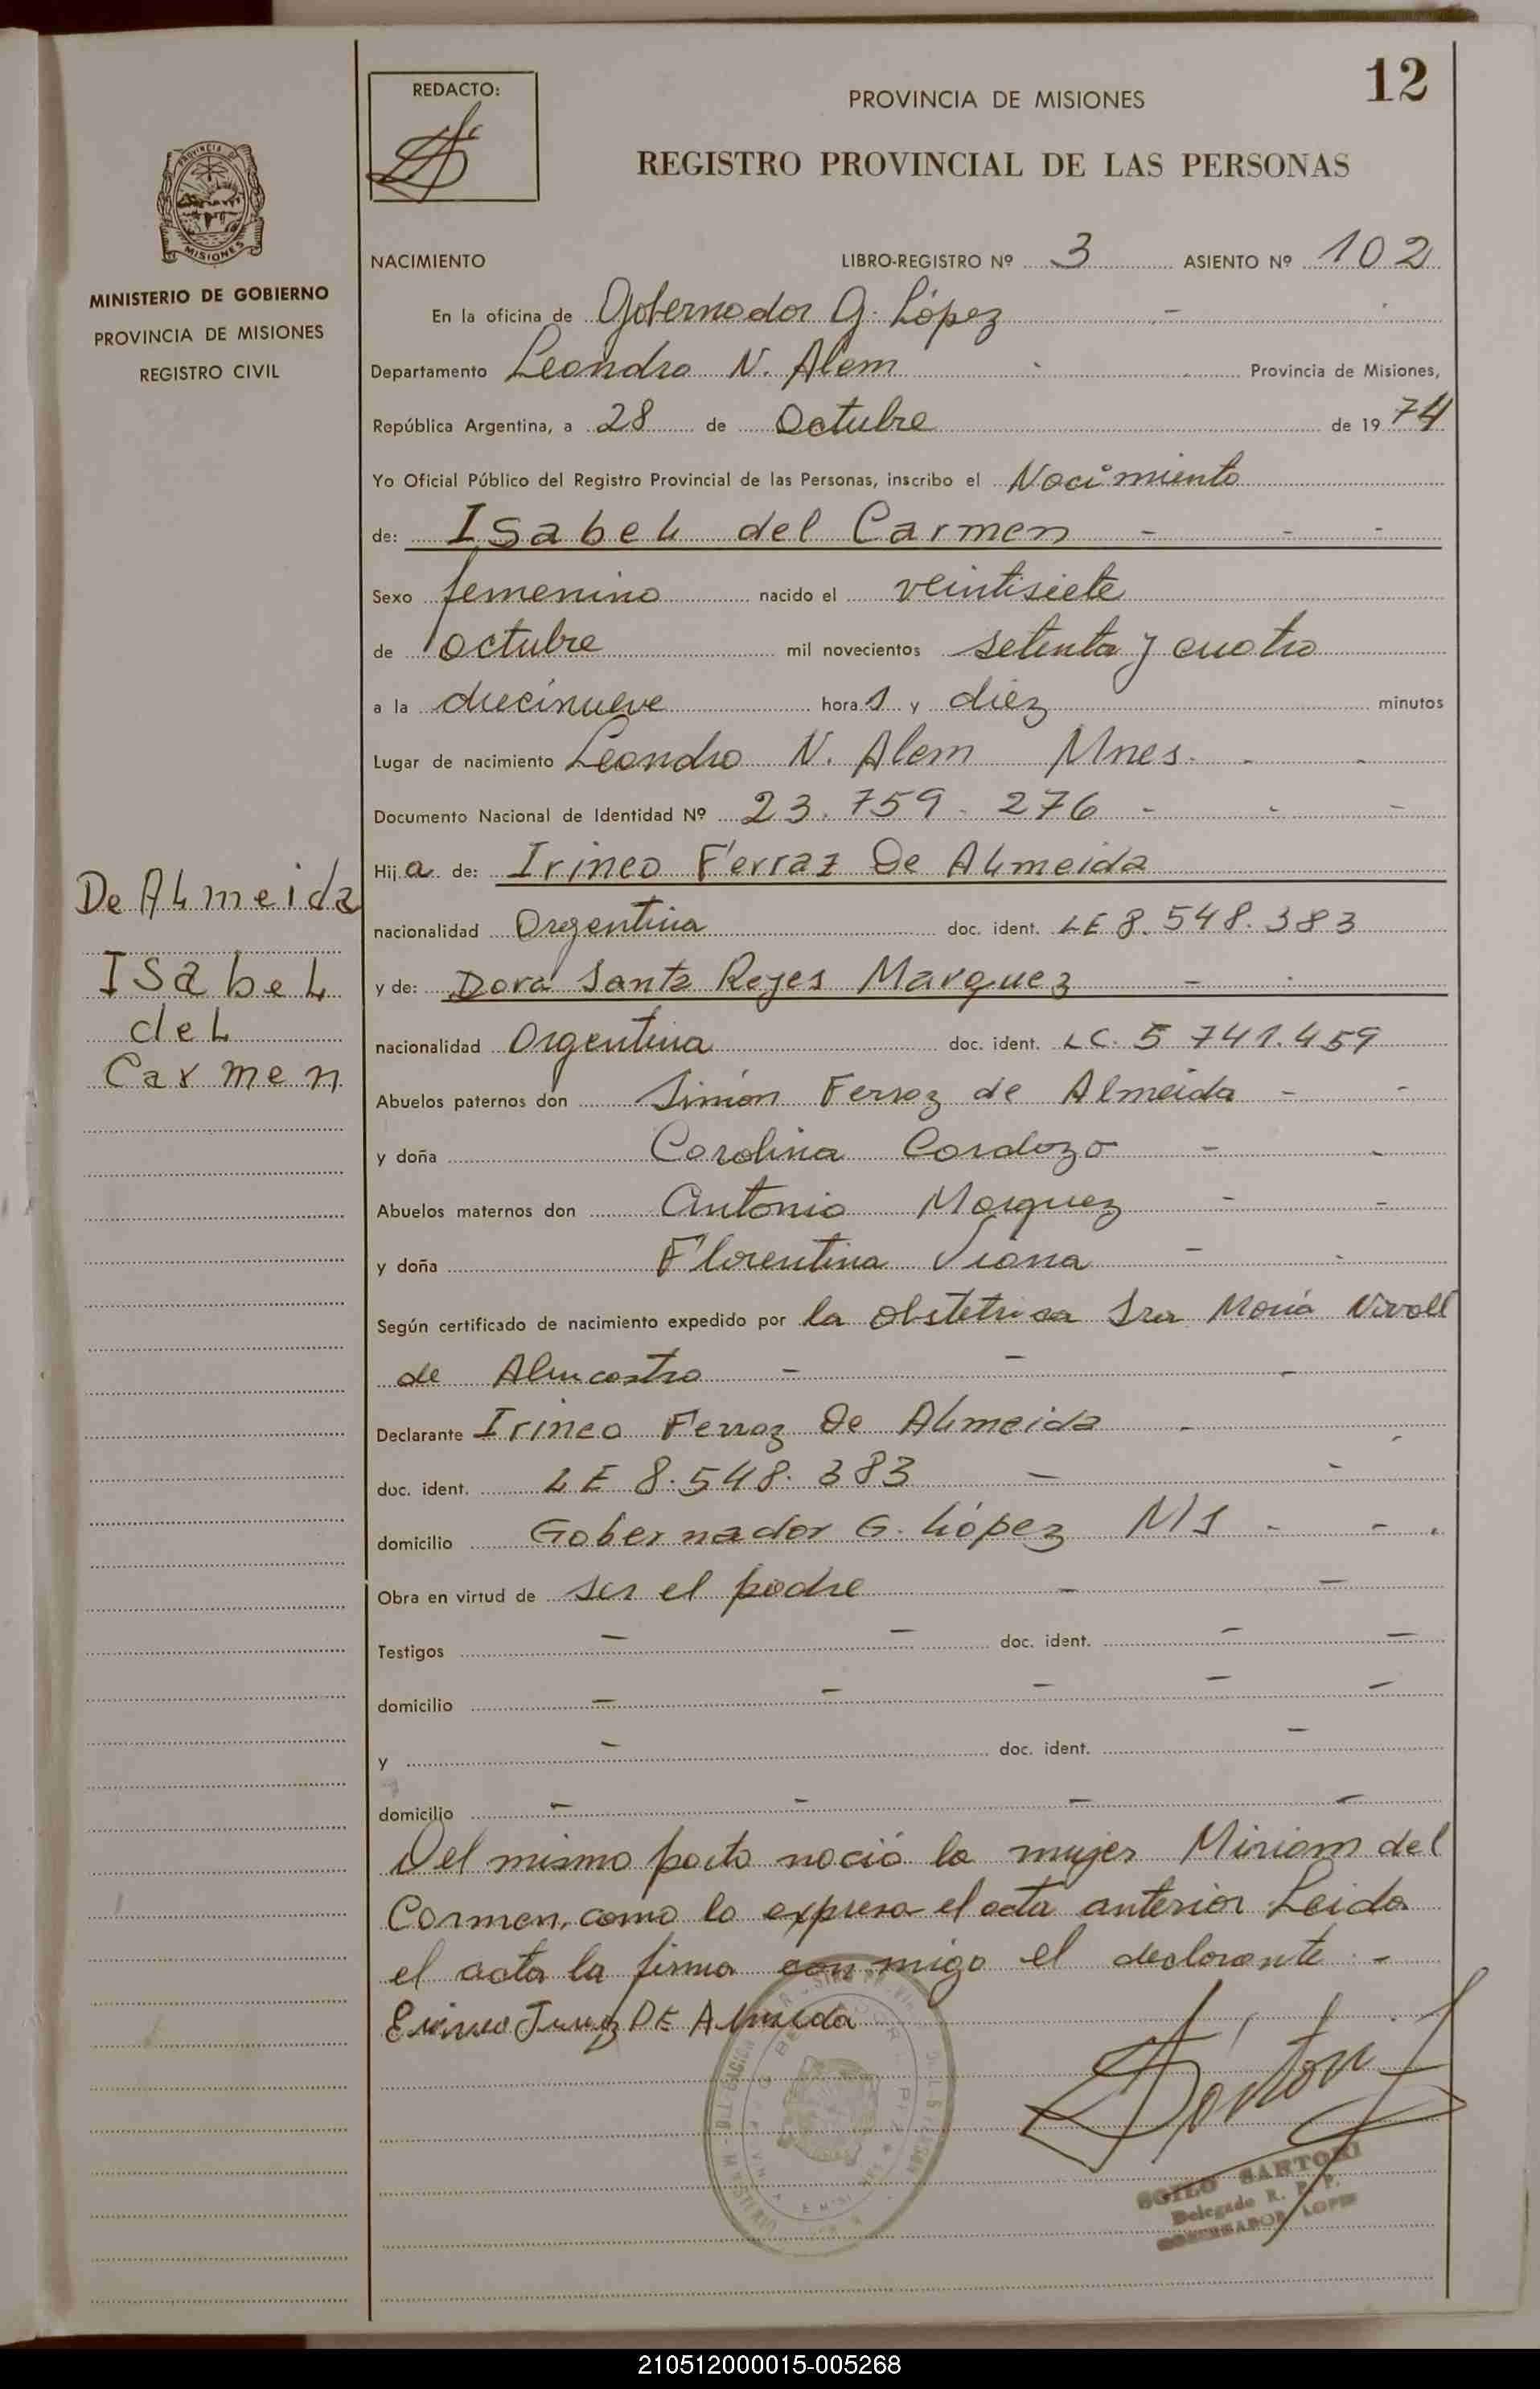 12
REDACTO:
PROVINCIA DE MISIONES
REGISTRO PROVINCIAL DE LAS PERSONAS
PROVINCIA DE
MISIONES
MINISTERIO DE GOBIERNO
PROVINCIA DE MISIONES
REGISTRO CIVIL
NACIMIENTO LIBRO-REGISTRO Nº 3 ASIENTO Nº 102
En la oficina de Gobernador G. López
Departamento Leandro N. Alem Provincia de Misiones,
República Argentina, a 28 de Octubre de 1974
Yo Oficial Público del Registro Provincial de las Personas, inscribo el Nacimiento
de: Isabel del Carmen
Sexo femenino nacido el veintisiete
de octubre mil novecientos setenta y cuatro
a la diecinueve horas y diez minutos
Lugar de nacimiento Leandro N. Alem Mnes.
Documento Nacional de Identidad Nº 23.759.276
Hija de: Irineo Ferraz De Almeida
De Almeida
Isabel
del
Carmen
nacionalidad Argentina doc. ident. LE 8.548.383
y de: Dora Santa Reyes Marquez
nacionalidad Argentina doc. ident. LC. 5 741.459
Abuelos paternos don Simón Ferraz de Almeida
y doña Carolina Cardozo
Abuelos maternos don Antonio Marquez
y doña Florentina Viana
Según certificado de nacimiento expedido por la obstetrica Sra María
de
Declarante Irineo Ferraz De Almeida
doc. ident. LE 8.548.383
domicilio Gobernador G. López Ms
Obra en virtud de ser el padre
Testigos doc. ident.
domicilio
y doc. ident.
domicilio
Del mismo parto nació la mujer Miriam del
Carmen, como lo expresa el acta anterior. Leida
el acta la firma conmigo el declarante.-
DE Almeida
SARTORI
Delegado R. P. P.
GOBERNADOR LOPEZ
210512000015-005268